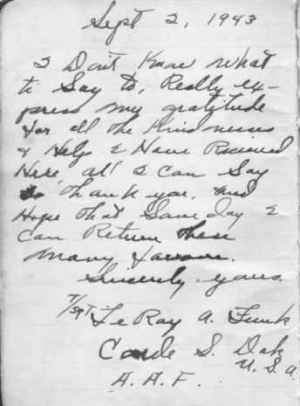 Sept 2, 1943
I Don't Know what
to Say to, Really ex-
press my gratitude
for all the Kindnesses
& Help I Have Received
Here, all I can Say
is thank you, and
Hope that Some day I
can Return these
many favors.
Sincerely yours
T/Sgt LeRoy A. Funk
Conde S. Dak
U.S.A.
A.A.F.